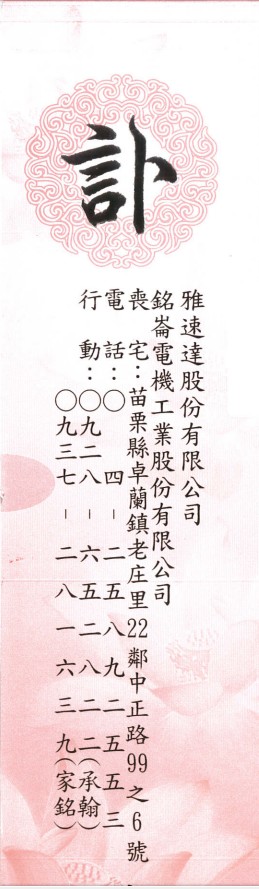 訃
雅速達股份有限公司
銘崙電機工業股份有限公司
喪宅：苗栗縣卓蘭鎮老庄里22鄰中正路99之6號
電話：○四－二五八九二五五三
行動：○九二八－六五二八二二（承翰）
○九三七－二八一六三九（家銘）